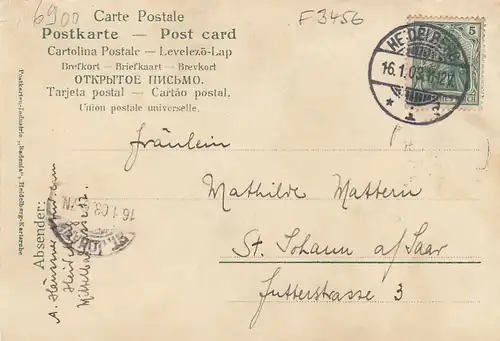 6900
F 3456
Carte Postale
Postkarte — Post card
Cartolina Postale — Levelező-Lap
Brefkort — Briefkaart — Brevkort
ОТКРЫТОЕ ПИСЬМО.
Tarjeta postal — Cartão postal.
Union postale universelle.
5
16.1.03
Fräulein
Mathilde Mattern
St. Johann a/Saar
Futterstrasse 3
Postkarten-Industrie „Badenia“, Heidelberg-Karlsruhe
Absender:
16.1.03